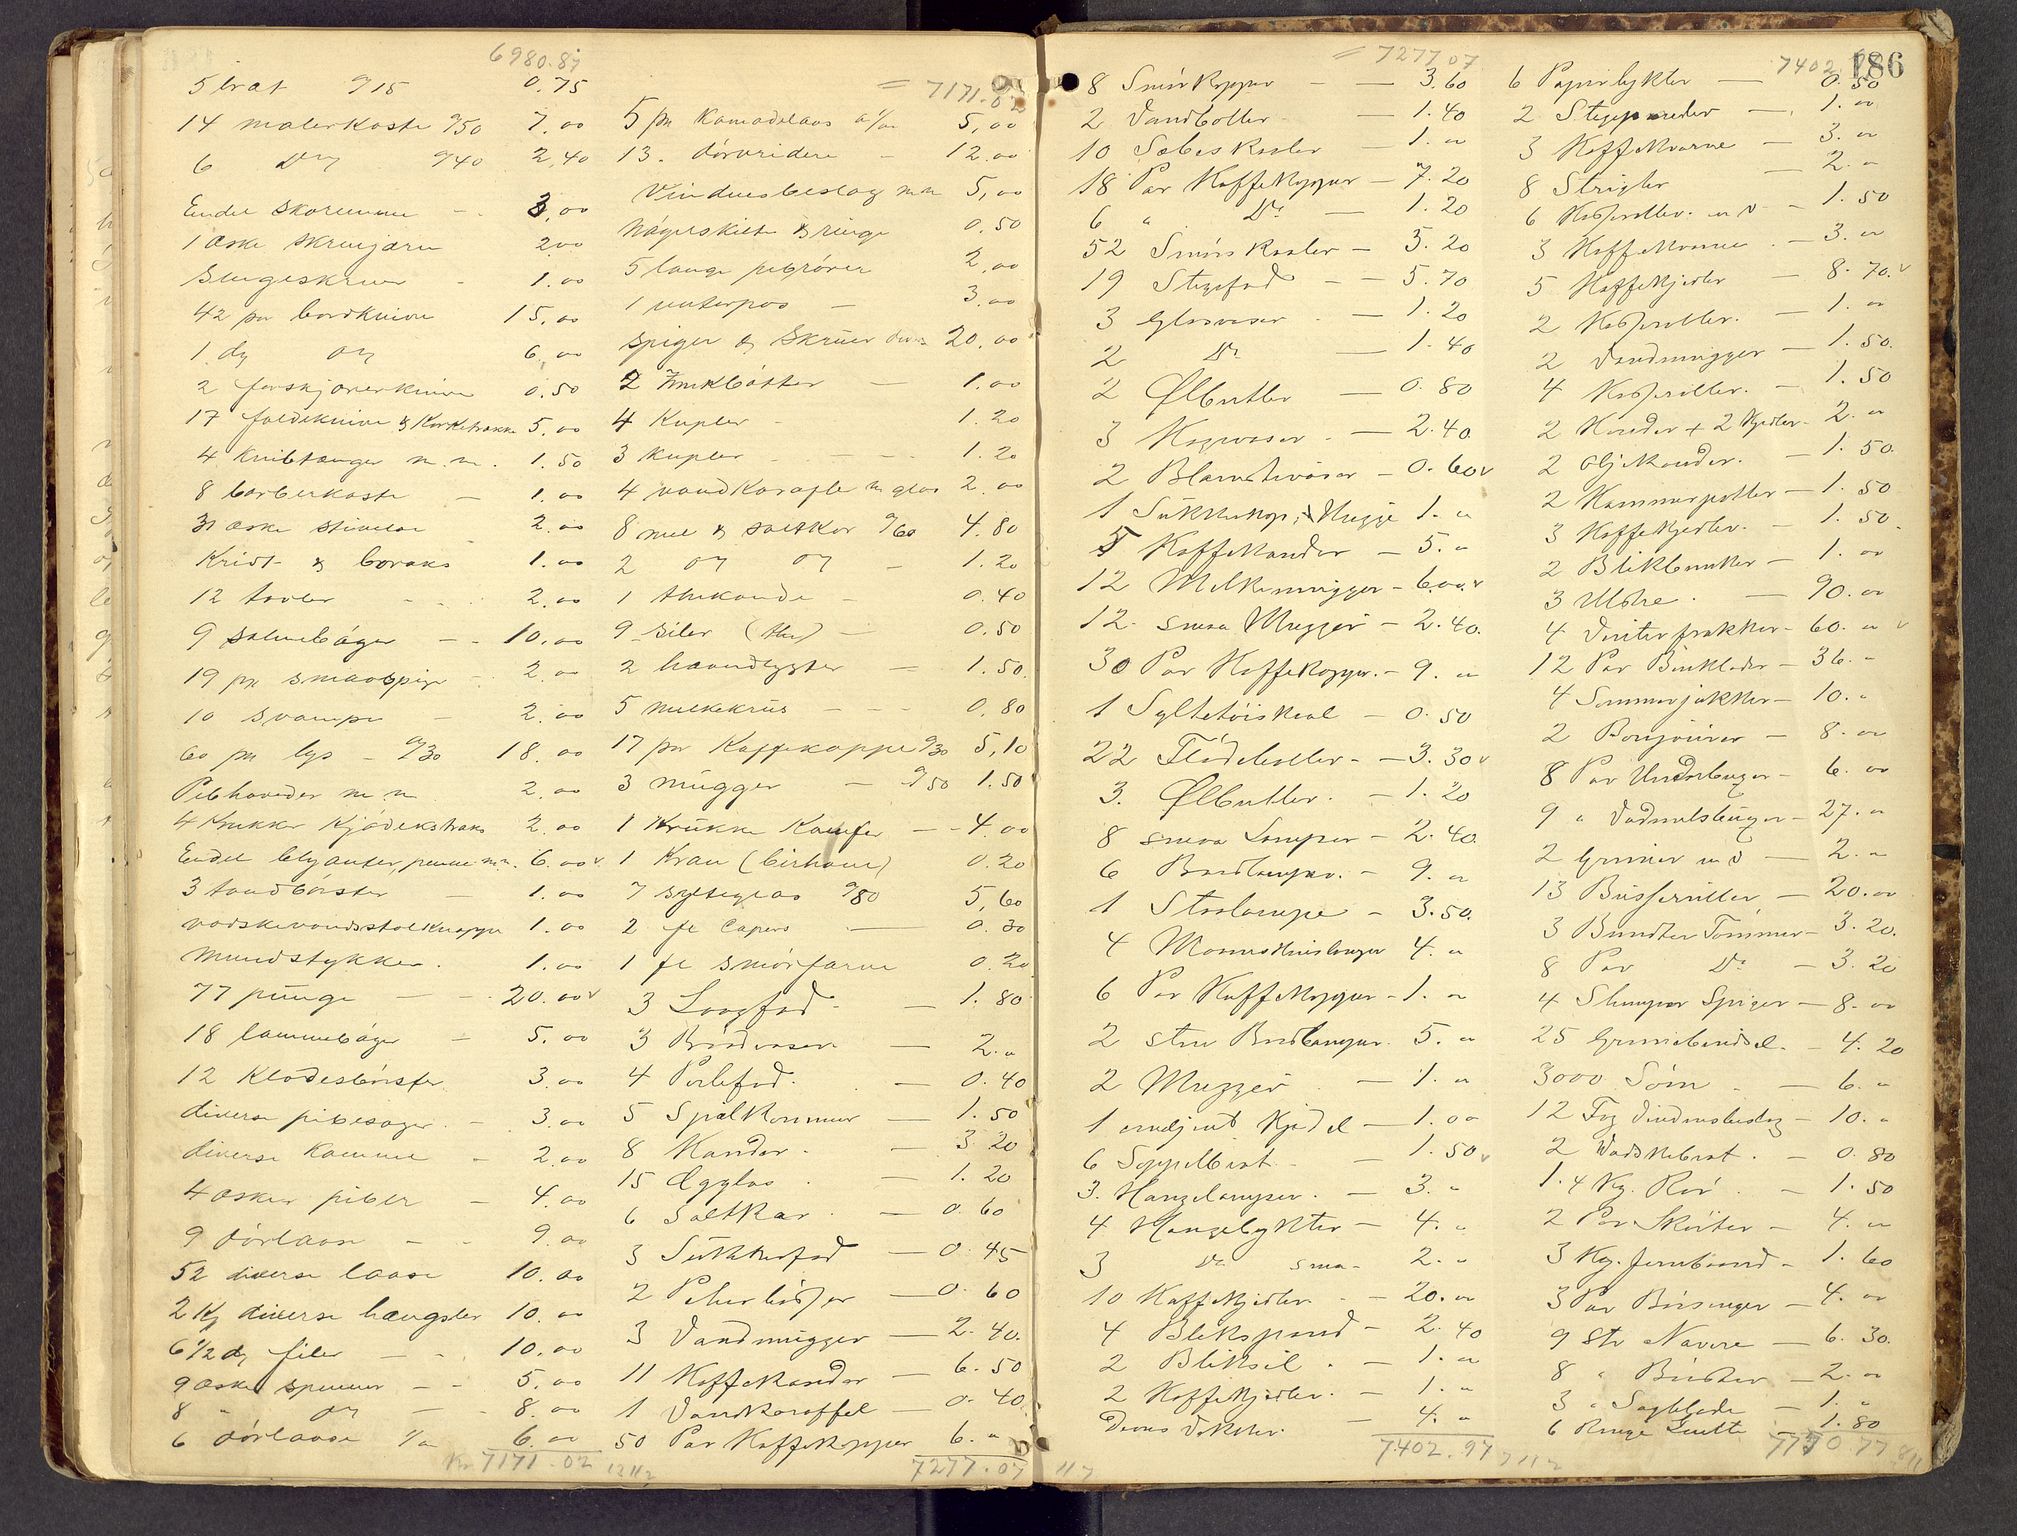 6980.87
5 bræt 9/15 0.75
14 malerkoste 9/50 7.00
6 Do 9/40 2,40
Endel skoremme - 3,00
1 æske skruejærn 2.00
Sengeskruer - 1.00
42 par bordknive 15.00
1 dz do 6.00
2 forskjærerknive 0.50
17 foldeknive & Korketrække 5.00
4 Knibtænger m.m. 1.50
8 barberkoste - 1.00
31 æske stivelse 2.00
Kridt & boraks 1.00
12 tavler - 2.00
9 salmebøger - 10.00
19 pk smaaspiger - 2.00
10 svampe - 2.00
60 pk lys - 9/30 18.00
Pibehoveder m.m. 2.00
4 Krukker Kjødekstrakt 2.00
Endel blyanter, penne m.m. 6.00
3 tandbørster - 1.00
vadskevandsstolknapper 1.00
Mundstykker. 1.00
77 punge - - 20.00
18 lommebøger - 5.00
12 Klædesbørster 3.00
diverse pibesager - 3.00
diverse Kamme - 2.00
4 æsker piber - 4.00
9 dørlaase - - 9.00
52 diverse laase 10.00
2 Kg diverse hængsler 10.00
6 1/2 dz filer - - 10.00
9 æsker spenner - - 5.00
8 " do - - 8.00
6 dørlaase 1/00 6.00
Kr 7171.02
= 7171.02
5 pk Komodelaas a 1/00 5,00
13. dørvridere - 12.00
Vinduesbeslag m.m 5,00
Nøgleskilte & ringe 0.50
5 lange piberører 2,00
1 vaterpas - 3.00
spiger & Skruer divers 20.00
2 Zinkbøtter - 1.00
4 Kupler - 1.20
3 Kupler - - - 1.20
4 vandkarafle m glas 2.00
8 mel & saltkar 9/60 4.80
2 do do - 1.20
1 thekande - 0.40
9 siler (the) - 0.50
2 haandlygter - 1.50
5 melkekrus - - - 0,80
17 par Kaffekoppe 9/30 5,10
3 mugger - 9/50 1.50
1 Krukke Kamfer - - 4.00
1 Kran (birhane) 0.20
7 sylteglas 9/80 5,60
2 fl Capers - 0.30
1 fl smørfarve 0.20
3 Laagfad - - 1.80
3 Brødvaser - 2."
4 Perlefad. - 0.40
5 Spølkommer - 1.50
8 Kander. - 3.20
15 Æggglas. - 1.20
6 Saltkar. - 0.60
3 Sukkerfad - 0.45
2 Peberbøsser - 0.60
3 Vandmugger - 2.40.
11 Kaffekander - 6.50
1 Vandkaraffel - 0.40
50 Par Kaffekopper 6."
7277.07
= 7277.07
8 Smørkopper - - 3.60
2 Vandboller - 1.40
10 Sæbeskaaler - 1."
18 Par Kaffekopper - 7.20
6 " Do - 1.20
52 Smørskaaler - 5.20
19 Stegefad - - 5.70
3 Glasvaser - 1.20
2 Do - 1.40
2 Ølbutler - 0.80
3 Kagevaser. - 2.40
2 Blomstervaser - 0.60
1 Sukkerkop, Mugge 1."
5 Kaffekander - 5."
12 Melkemugger - 6.00
12. smaa Mugger - 2.40.
30 Par Kaffekopper. - 9."
1 Syltetøiskaal - 0.50
22 Flødeboller - - 3.30
3. Ølbutler. - 1.20
8 smaa Lamper - 2.40.
6 Bordlamper. - 9."
1 Staalampe - 3.50.
4 Maaneskinslamper 4."
6 Par Kaffekopper - 1."
2 store Bordlamper. 5."
2 Mugger - 1."
1 emaljeret Kjedel - 1.00
6 Soppelbræt - - 1.50
3. Hængelamper. - 3."
4 Hængelykter - 4."
3 Do smaa - 2."
10 Kaffekjedler - - 20."
4 Blikspand - 2.40
2 Bliksil. - 1."
2 Kaffekjedler. - 1."
- 4."
7402.97
7402
186
6 Papirlykter - 0.50
2 - 1."
3 Kaffekværne - 3."
8 Strigler - 2."
6 Kasseroller. m v - 1.50
3 Kaffekværne. - 3."
5 Kaffekjedler - 8.70.
2 Kasseroller. - 1."
2 Vandmugger - 1.50.
4 Kasseroller. - 1.50
2 + 2 Kjedler - 2."
2 Oljekander. - 1.50.
2 Kammerpotter - 1.50
3 Kaffekjedler. - 1.50.
2 Blikbunker - 1."
3 Ulstre. - 90."
4 Vinterfrakker - 60."
12 Par Benklæder - 36."
4 Sommerjakker - 10."
2 Bonjourer - 8."
8 Par Underbuxer - 6."
9 " Vadmelsbuxer - 27."
2 Grimer m v - 2."
13 Busseruller - 20."
3 Bundter Tømmer - 3.20.
8 Par Do - 3.20
4 Slumper Spiger - 8."
25 Grimebindsel. - 4.20
3000 Søm. - 6."
12 Vinduesbeslag - 10."
2 Vadskebræt. - 0.80
1.4 Kg. Rør. - 1.50
2 Par Skøiter - 4."
3 Kg. Jernbaand - 1.60
3 Par Bøsinger - 4."
9 Str Navere - 6.30.
8 " Børster - 2."
3 " Sagblade - 1."
6 Ringe - 1.80
77